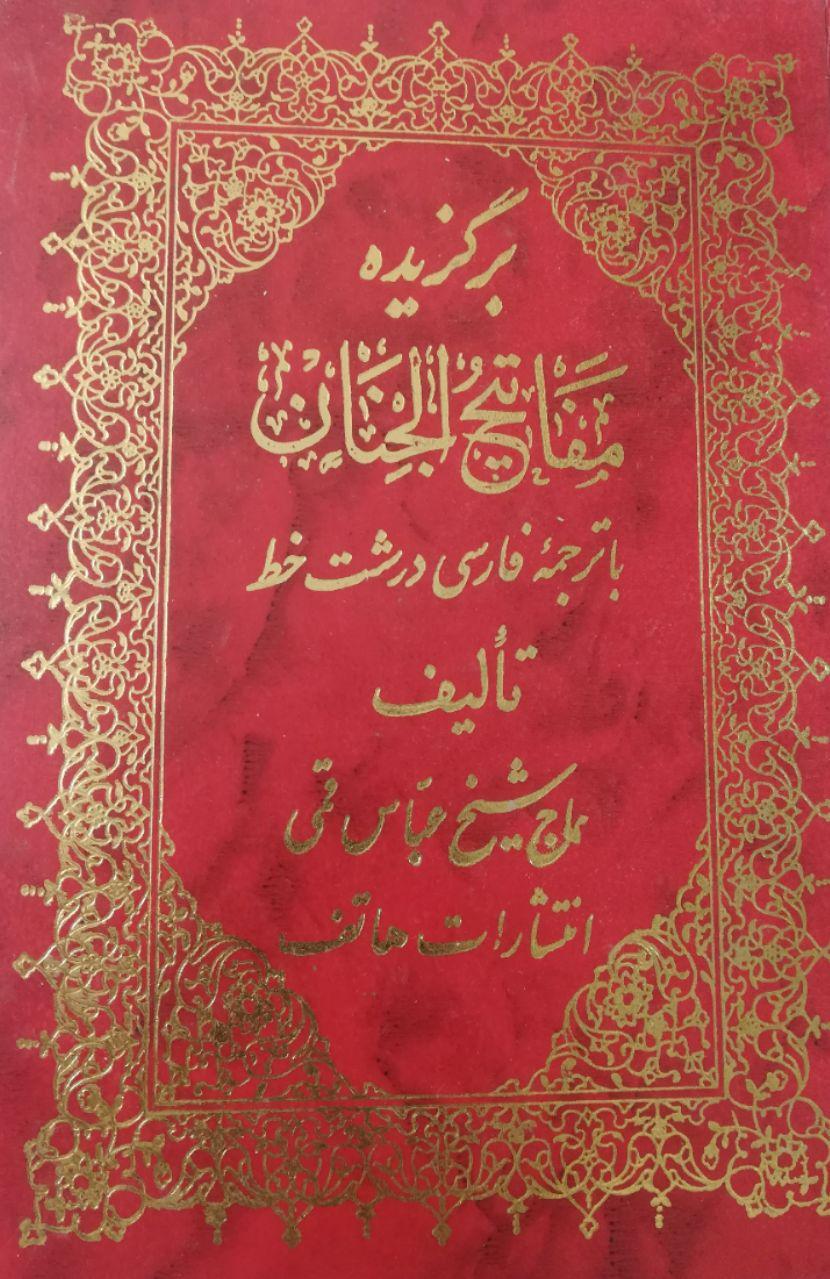 برگزیده
مفَاتیحُ الجِنَانِ
با ترجمهٔ فارسی درشت خط
تألیف
حاج شیخ عبّاس قمی
انتشارات هاتف